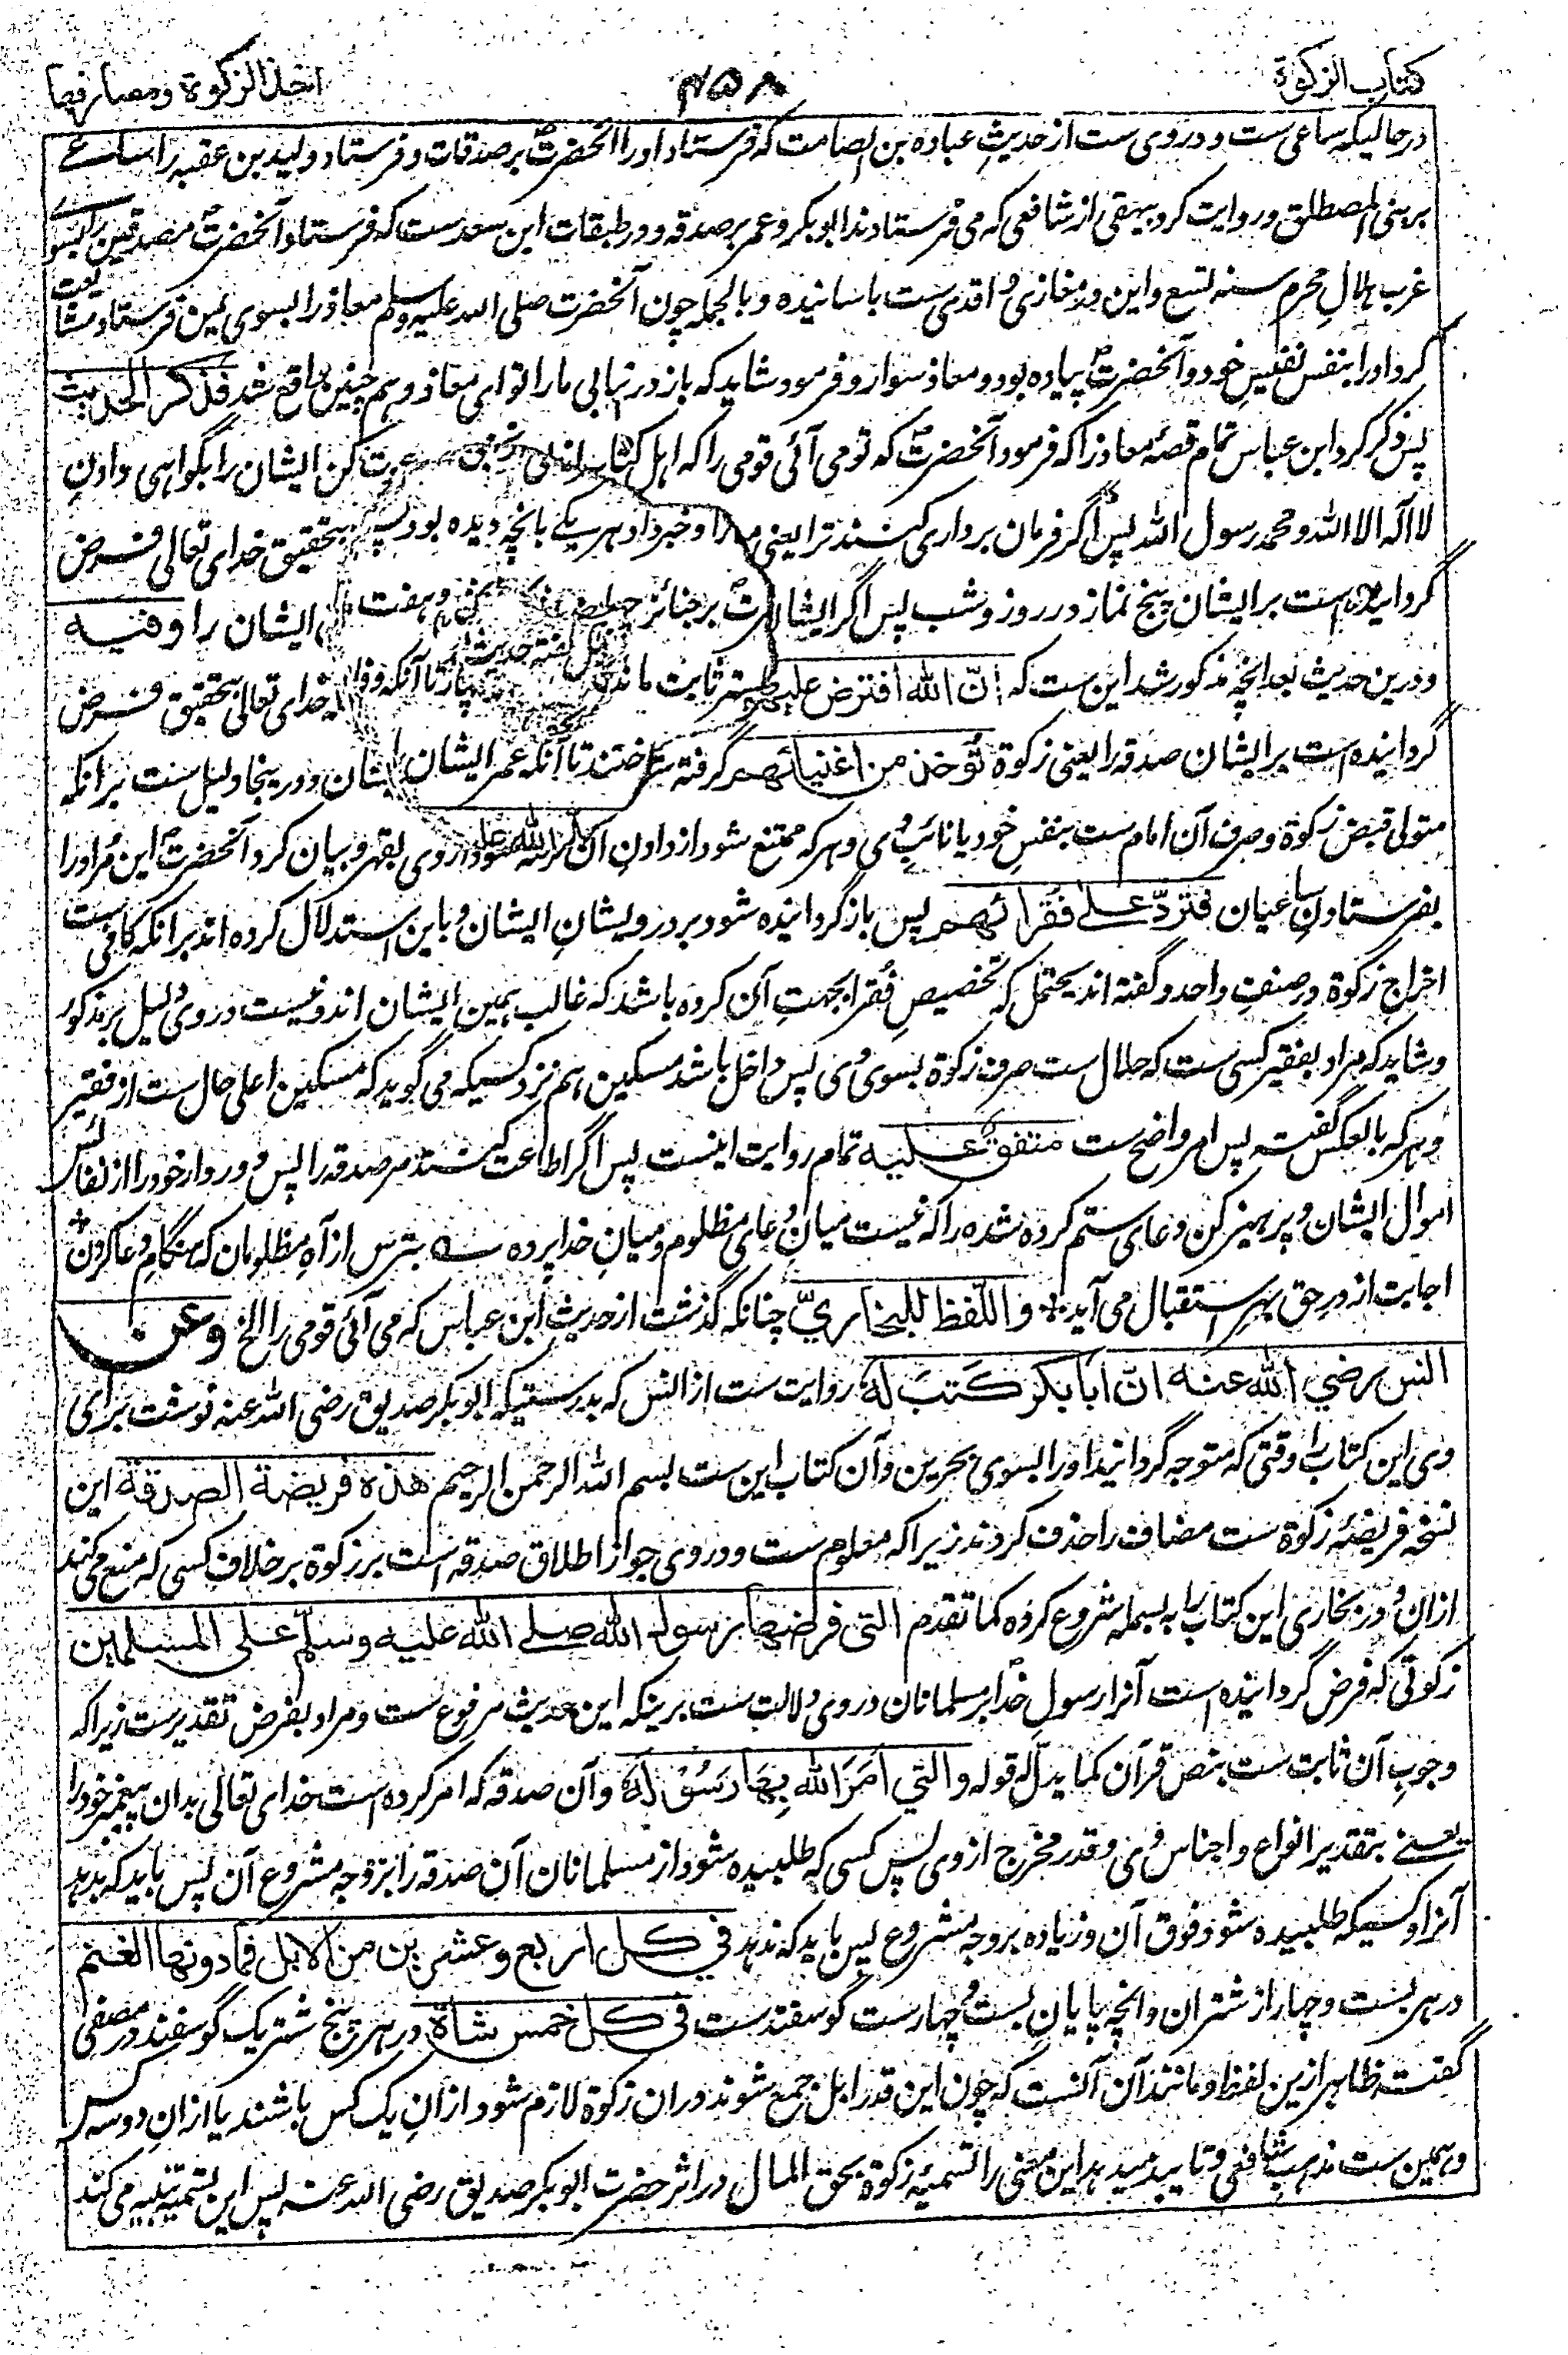 کتاب الزکوة
۴۵۸
اخذ الزکوة ومصارفها
درحالیکه ساعی ست و در وی ست از حدیثِ عباده بن الصامت که فرستاد او را آنحضرتؐ بر صدقات و فرستاد ولید بن عقبه را ساعی
بر بنی المصطلق و روایت کرد بیهقی از شافعی که می فرستادند ابوبکر و عمر بر صدقه و در طبقات ابن سعدست که فرستاد آنحضرتؐ مصدقین را بسوے
عرب هلالِ محرم سنه تسع و این در مغازی واقدی ست باسانیده و بالجمله چون آنحضرت صلی الله علیه وسلم معاذ را بسوی یمن فرستاد مشایعت
کرد او را بنفس نفیسِ خود و آنحضرتؐ پیاده بود و معاذ سوار و فرمود شاید که باز در نیابی ما را تو ای معاذ و هم چنین واقع شد فذکر الحدیث
پس ذکر کرد ابن عباس تمام قصهٔ معاذ را که فرمود آنحضرتؐ که تو می آئی قومی را که اهل کتاب دعوت کن ایشان را بگواهی دادنِ
لا اله الا الله و محمد رسول الله پس اگر فرمان برداری کنند ترا یعنی بتحقیق خدای تعالی فرض
گردانیده است بر ایشان پنج نماز در روز و شب پس اگر ایشان ایشان را وفیه
و درین حدیث بعد انچه مذکور شد این ست که انّ الله افترض علیهم خدای تعالی بتحقیق فرض
گردانیده است بر ایشان صدقه را یعنی زکوة تؤخذ من اغنیائهم گرفته ایشان و درینجا دلیل ست برانکه
متولی قبض زکوة و صرف آن امام ست بنفسِ خود یا نائبِ وی و هر که ممتنع شود از دادنِ آن از وی بقهر و بیان کرد آنحضرتؐ این مراد را
بفرستادنِ ساعیان فتردّ علے فقرائهم پس باز گردانیده شود بر درویشانِ ایشان و باین استدلال کرده اند برانکه کافی ست
اخراجِ زکوة در صنفِ واحد و گفته اند یحتمل که تخصیصِ فقرا بجهتِ آن کرده باشد که غالب همین ایشان اند و نیست در وی دلیل بر مذکور
و شاید که مراد بفقیر کسی ست که حلال ست صرفِ زکوة بسوی وی پس داخل باشد مسکین هم نزد کسیکه می گوید که مسکین اعلی حال ست از فقیر
و هر که بالعکس گفته پس امر واضح ست متفق علیه تمام روایت اینست پس اگر اطاعت کنند مر صدقه را پس دور دار خود را از نفائس
اموال ایشان و پرهیز کن دعای ستم کرده شده را که نیست میانِ دعای مظلوم و میانِ خدا پرده ؎ بترس از آهِ مظلومان که هنگامِ دعا کردن
اجابت از درِ حق بهرِ استقبال می آید و اللفظ للبخاریّ چنانکه گذشت از حدیثِ ابن عباس که می آئی قومی را الخ وعن
انس رضی الله عنه انّ ابا بکر کتَبَ له روایت ست از انس که بدرستیکه ابوبکر صدیق رضی الله عنه نوشت برای
وی این کتاب را وقتی که متوجه گردانید او را بسوی بحرین و آن کتاب این ست بسم الله الرحمن الرحیم هذه فریضة الصدقة این
نسخه فریضهٔ زکوة ست مضاف را حذف کردند زیرا که معلوم ست و در وی جواز اطلاق صدقه است بر زکوة بر خلافِ کسی که منع می کند
ازان و در بخاری این کتاب را به بسمله شروع کرده کما تقدم التی فرضها رسول الله صلے الله علیه وسلّم علی المسلمین
زکوتی که فرض گردانیده است آنرا رسولِ خدا بر مسلمانان در وی دلالت ست برینکه این حدیث مرفوع ست و مراد بفرض تقدیرست زیرا که
وجوبِ آن ثابت ست بنصِ قرآن کما یدلّ له قوله و التی امَرَ الله بِهَا رَسُوْلَه و آن صدقه که امر کرده است خدای تعالی بدان پیغمبرِ خود را
یعنے بتقدیر انواع و اجناس وی و قدر مخرج از وی پس کسی که طلبیده شود از مسلمانان آن صدقه را بر وجه مشروع آن پس باید که بدهد
آنرا و کسیکه طلبیده شود فوق آن و زیاده بر وجه مشروع پس باید که ندهد فی کل اربع و عشرین من الابل فما دونها الغنم
در هر بست و چهار از شتران و انچه پایانِ بست و چهارست گوسفندست فی کل خمس شاة در هر پنج شتر یک گوسفند در مصفی
گفته ظاهر ازین لفظ و مانند آن آنست که چون این قدر ابل جمع شوند دران زکوة لازم شود ازانِ یک کس باشند یا ازانِ دو سه کس
و همین ست مذهبِ شافعی و تایید میدهد این معنی را تسمیهٔ زکوة بحق المال در اثر حضرت ابوبکر صدیق رضی الله عنه پس این تسمیه تنبیه می کند